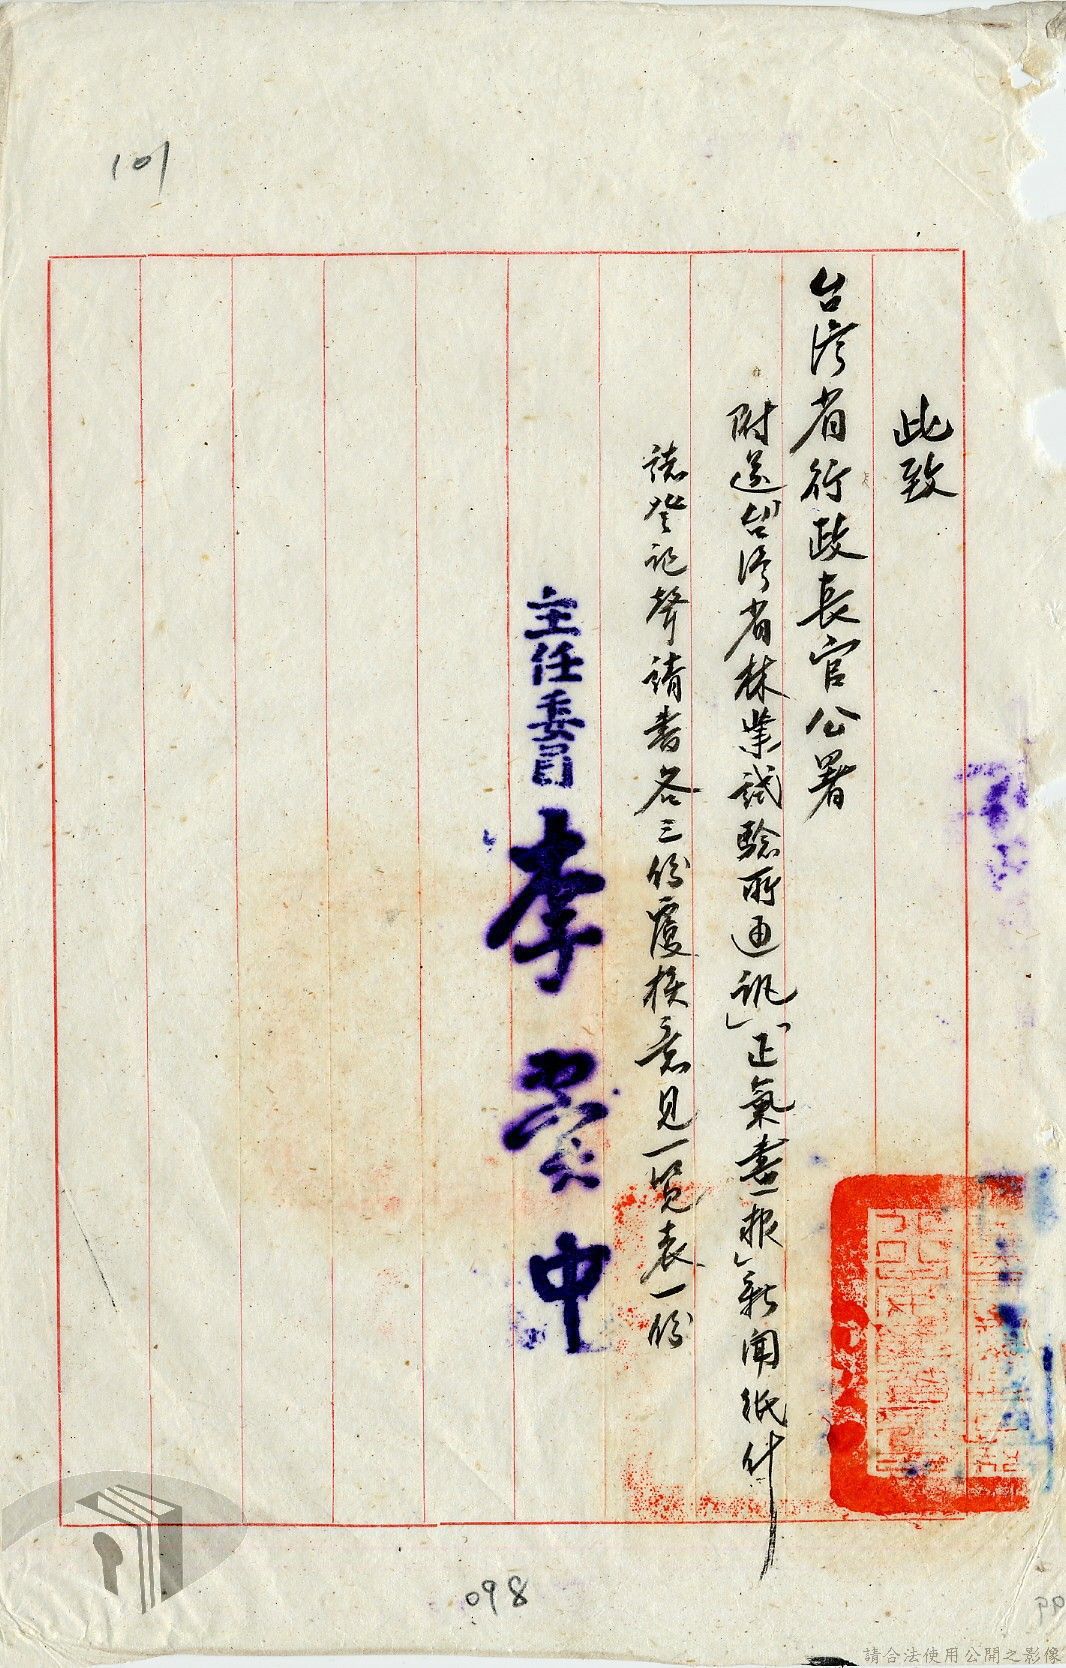 101
此致
台湾省行政長官公署
附送「台湾省林業試驗所通訊」「正氣畫報」新聞紙什
誌登記聲請書各三份覆核意見一覽表一份
主任委員 李翼中
098
請合法使用公開之影像